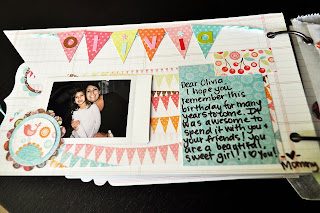 OLIVIA
Dear Olivia
I hope you
remember this
birthday for many
years to come. It
was awesome to
spend it with you +
your friends! You
are a beautiful,
sweet girl! I ♡ You!
♡ Mommy